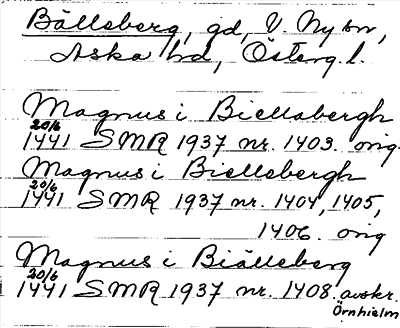 Bälleberg, gd, V. Ny sn,
Aska hd, Österg. l.
Magnus i Biellabergh
20/6
1441 SMR 1937 nr. 1403. orig.
Magnus i Biellebergh
20/6
1441 SMR 1937 nr. 1404, 1405,
1406. orig
Magnus i Biälleberg
20/6
1441 SMR 1937 nr. 1408. avskr.
Örnhielm